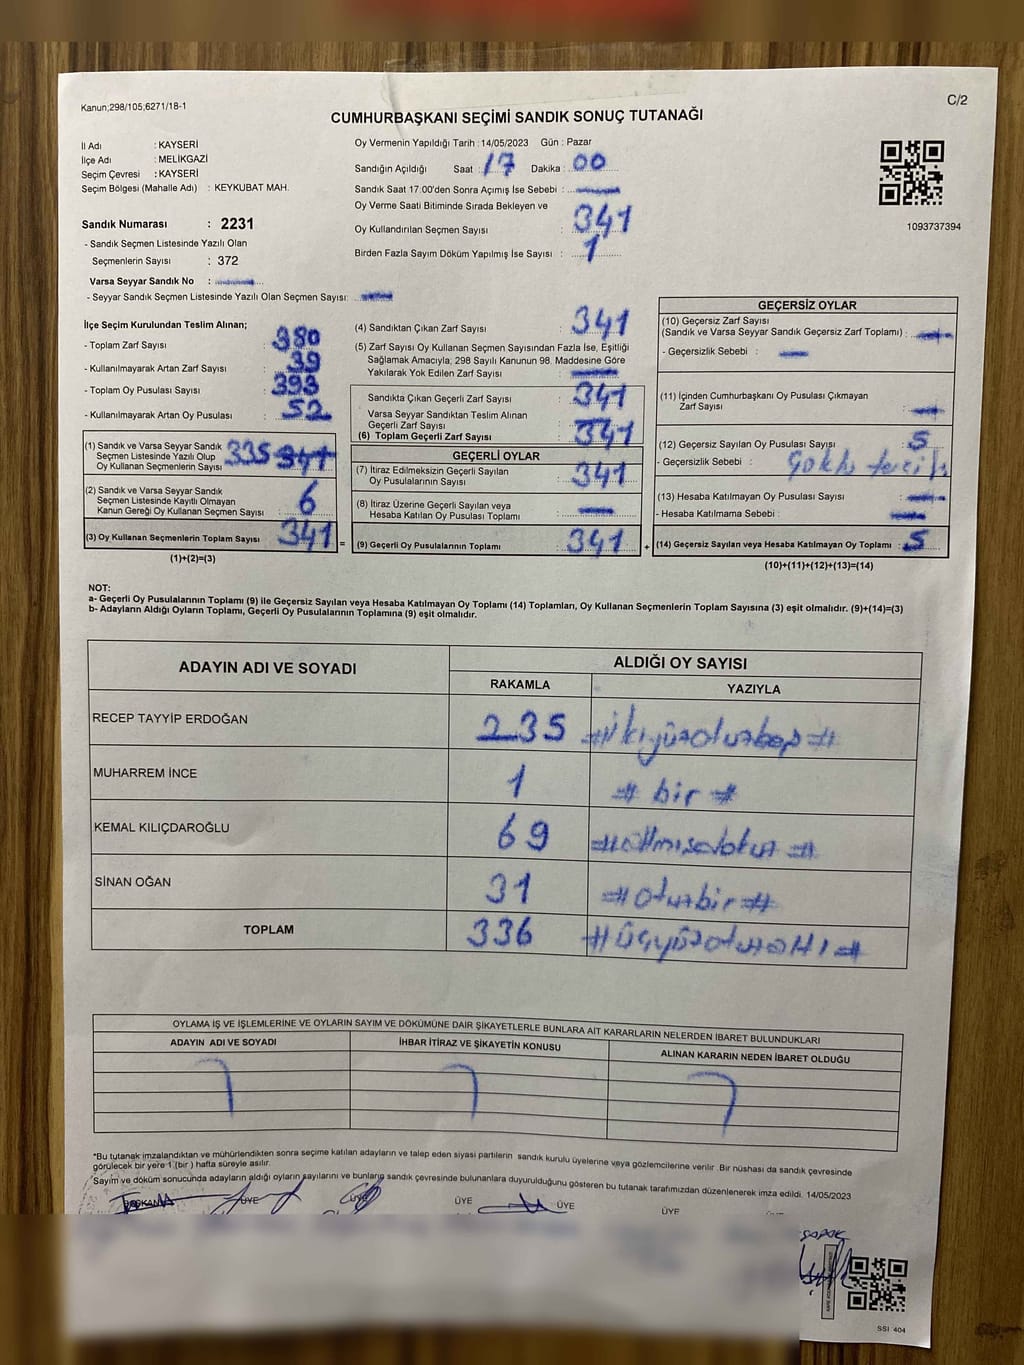 Kanun;298/105,6271/18-1
C/2
CUMHURBAŞKANI SEÇİMİ SANDIK SONUÇ TUTANAĞI
İl Adı : KAYSERİ
İlçe Adı : MELİKGAZİ
Seçim Çevresi : KAYSERİ
Seçim Bölgesi (Mahalle Adı) : KEYKUBAT MAH.
Sandık Numarası : 2231
- Sandık Seçmen Listesinde Yazılı Olan
Seçmenlerin Sayısı : 372
Varsa Seyyar Sandık No :
- Seyyar Sandık Seçmen Listesinde Yazılı Olan Seçmen Sayısı:
Oy Vermenin Yapıldığı Tarih : 14/05/2023 Gün : Pazar
Sandığın Açıldığı Saat : 17 Dakika : 00
Sandık Saat 17:00'den Sonra Açımış İse Sebebi :
Oy Verme Saati Bitiminde Sırada Bekleyen ve
Oy Kullandırılan Seçmen Sayısı : 341
Birden Fazla Sayım Döküm Yapılmış İse Sayısı : 1
1093737394
İlçe Seçim Kurulundan Teslim Alınan;
- Toplam Zarf Sayısı : 380
- Kullanılmayarak Artan Zarf Sayısı : 39
- Toplam Oy Pusulası Sayısı : 393
- Kullanılmayarak Artan Oy Pusulası : 52
(1) Sandık ve Varsa Seyyar Sandık
Seçmen Listesinde Yazılı Olup
Oy Kullanan Seçmenlerin Sayısı : 335 341
(2) Sandık ve Varsa Seyyar Sandık
Seçmen Listesinde Kayıtlı Olmayan
Kanun Gereği Oy Kullanan Seçmen Sayısı : 6
(3) Oy Kullanan Seçmenlerin Toplam Sayısı : 341 =
(1)+(2)=(3)
(4) Sandıktan Çıkan Zarf Sayısı : 341
(5) Zarf Sayısı Oy Kullanan Seçmen Sayısından Fazla İse, Eşitliği
Sağlamak Amacıyla, 298 Sayılı Kanunun 98. Maddesine Göre
Yakılarak Yok Edilen Zarf Sayısı :
Sandıkta Çıkan Geçerli Zarf Sayısı : 341
Varsa Seyyar Sandıktan Teslim Alınan
Geçerli Zarf Sayısı :
(6) Toplam Geçerli Zarf Sayısı : 341
GEÇERLİ OYLAR
(7) İtiraz Edilmeksizin Geçerli Sayılan
Oy Pusulalarının Sayısı : 341
(8) İtiraz Üzerine Geçerli Sayılan veya
Hesaba Katılan Oy Pusulası Toplamı :
(9) Geçerli Oy Pusulalarının Toplamı : 341 +
GEÇERSİZ OYLAR
(10) Geçersiz Zarf Sayısı
(Sandık ve Varsa Seyyar Sandık Geçersiz Zarf Toplamı) :
- Geçersizlik Sebebi :
(11) İçinden Cumhurbaşkanı Oy Pusulası Çıkmayan
Zarf Sayısı :
(12) Geçersiz Sayılan Oy Pusulası Sayısı : 5
- Geçersizlik Sebebi : Çoklu tercih
(13) Hesaba Katılmayan Oy Pusulası Sayısı :
- Hesaba Katılmama Sebebi :
(14) Geçersiz Sayılan veya Hesaba Katılmayan Oy Toplamı : 5
(10)+(11)+(12)+(13)=(14)
NOT:
a- Geçerli Oy Pusulalarının Toplamı (9) ile Geçersiz Sayılan veya Hesaba Katılmayan Oy Toplamı (14) Toplamları, Oy Kullanan Seçmenlerin Toplam Sayısına (3) eşit olmalıdır. (9)+(14)=(3)
b- Adayların Aldığı Oyların Toplamı, Geçerli Oy Pusulalarının Toplamına (9) eşit olmalıdır.
ADAYIN ADI VE SOYADI ALDIĞI OY SAYISI
RAKAMLA YAZIYLA
RECEP TAYYİP ERDOĞAN 235 #ikiyüzotuzbeş#
MUHARREM İNCE 1 # bir #
KEMAL KILIÇDAROĞLU 69 #altmışdokuz #
SİNAN OĞAN 31 #otuzbir#
TOPLAM 336 #üçyüzotuzaltı#
OYLAMA İŞ VE İŞLEMLERİNE VE OYLARIN SAYIM VE DÖKÜMÜNE DAİR ŞİKAYETLERLE BUNLARA AİT KARARLARIN NELERDEN İBARET BULUNDUKLARI
ADAYIN ADI VE SOYADI İHBAR İTİRAZ VE ŞİKAYETİN KONUSU ALINAN KARARIN NEDEN İBARET OLDUĞU
*Bu tutanak imzalandıktan ve mühürlendikten sonra seçime katılan adayların ve talep eden siyasi partilerin sandık kurulu üyelerine veya gözlemcilerine verilir. Bir nüshası da sandık çevresinde
görülecek bir yere 1 (bir) hafta süreyle asılır.
Sayım ve döküm sonucunda adayların aldığı oyların sayılarını ve bunların sandık çevresinde bulunanlara duyurulduğunu gösteren bu tutanak tarafımızdan düzenlenerek imza edildi. 14/05/2023
BAŞKAN ÜYE ÜYE ÜYE ÜYE ÜYE
SSI: 404